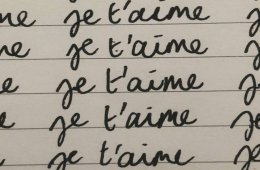 me je t'aime je
ne je t'aime je
e je t'aime je
e je t'aime je
je t'aime je